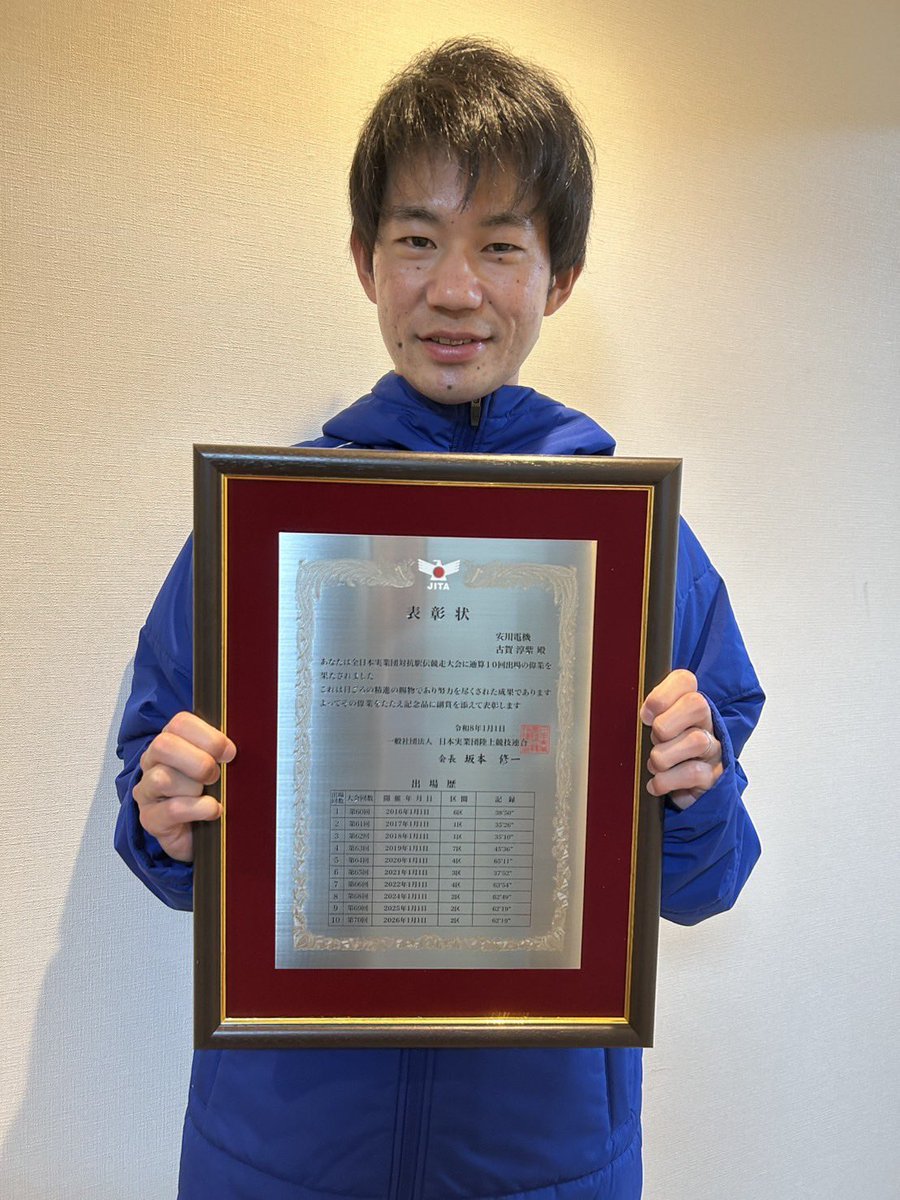 JITA
表彰状
安川電機
古賀 淳紫 殿
あなたは全日本実業団対抗駅伝競走大会に通算10回出場の偉業を
果たされました
これは日ごろの精進の賜物であり努力を尽くされた成果であります
よってその偉業をたたえ記念品に副賞を添えて表彰します
令和8年1月1日
一般社団法人 日本実業団陸上競技連合
会長 坂本 修一
出場歴
出場回数 大会回数 開催年月日 区間 記録
1 第60回 2016年1月1日 6区 38'50"
2 第61回 2017年1月1日 1区 35'26"
3 第62回 2018年1月1日 1区 35'10"
4 第63回 2019年1月1日 7区 45'36"
5 第64回 2020年1月1日 4区 65'11"
6 第65回 2021年1月1日 3区 37'52"
7 第66回 2022年1月1日 4区 63'54"
8 第68回 2024年1月1日 2区 62'49"
9 第69回 2025年1月1日 2区 62'19"
10 第70回 2026年1月1日 2区 62'19"